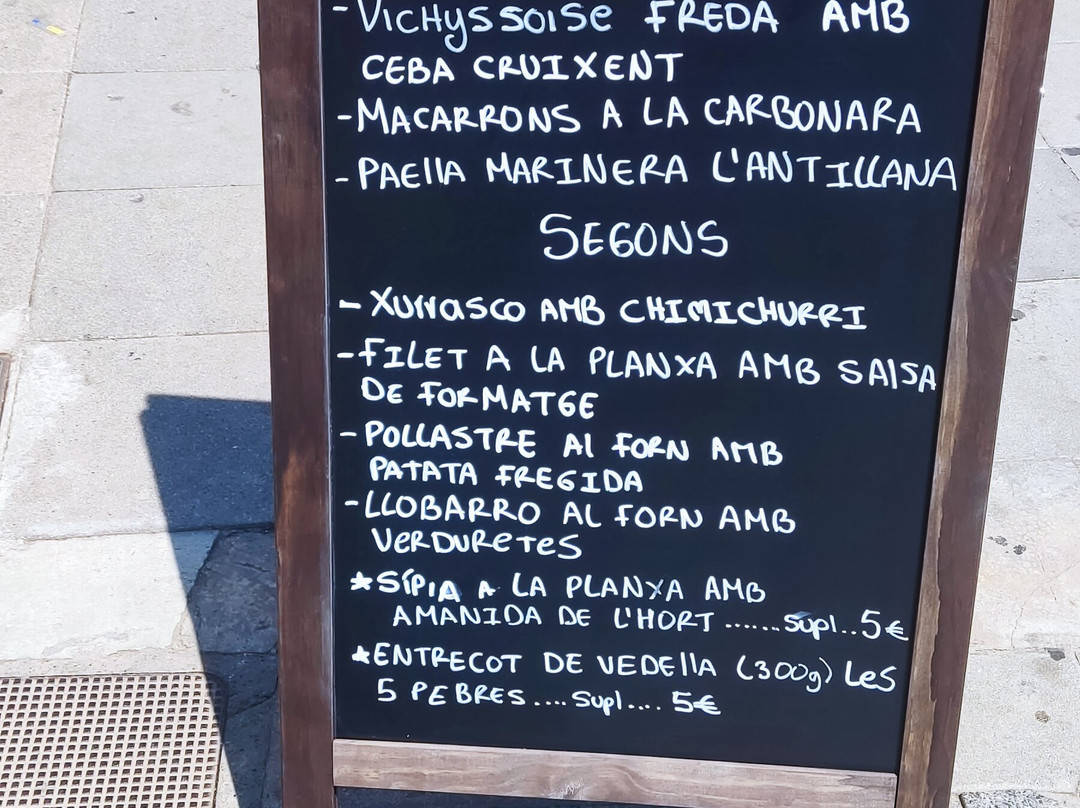 - VICHYSSOISE FREDA AMB
CEBA CRUIXENT
- MACARRONS A LA CARBONARA
- PAEllA MARINERA L'ANTILLANA
SEGONS
- XURRASCO AMB CHIMICHURRI
- FILET A LA PLANXA AMB SALSA
DE FORMATGE
- POLLASTRE Al FORN AMB
PATATA FREGIDA
- LLOBARRO AL FORN AMB
VERDURETES
*SÍPIA A LA PLANXA AMB
AMANIDA DE L'HORT .......Supl..5€
*ENTRECOT DE VEDEllA (300g) LES
5 PEBRES....Supl.... 5€